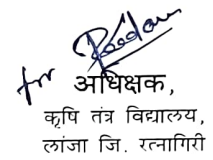 for
अधिक्षक,
कृषि तंत्र विद्यालय,
लांजा जि. रत्नागिरी